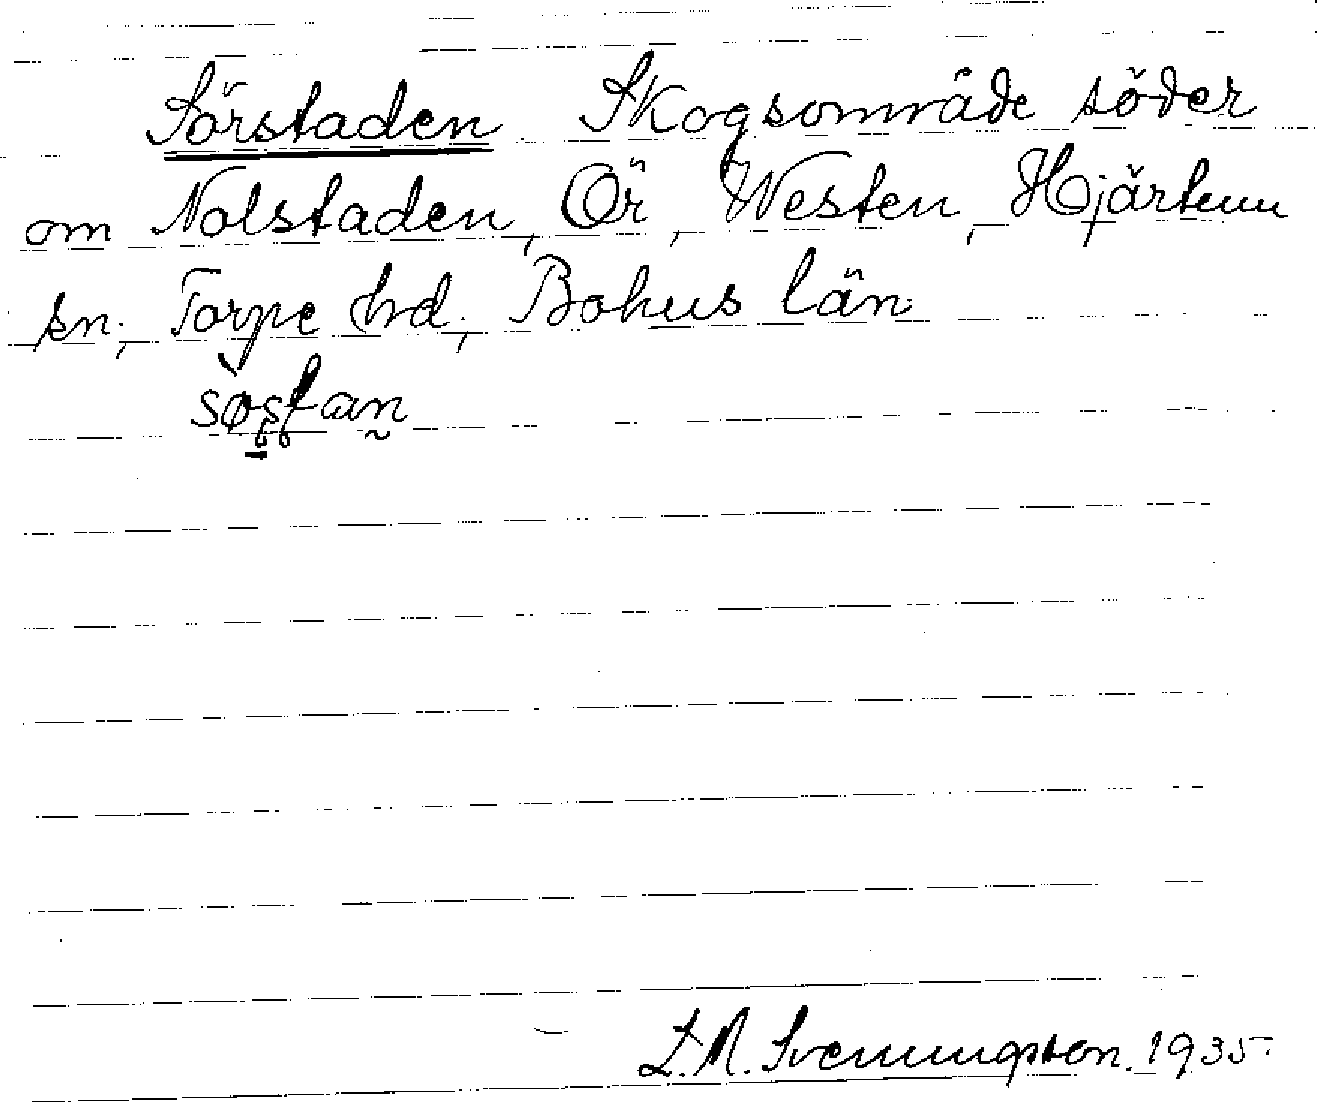 Sörstaden Skogsområde söder
om Nolstaden, Ör, Westen, Hjärtum
sn; Torpe hd; Bohus län.
L. M. Svenningsson. 1935.